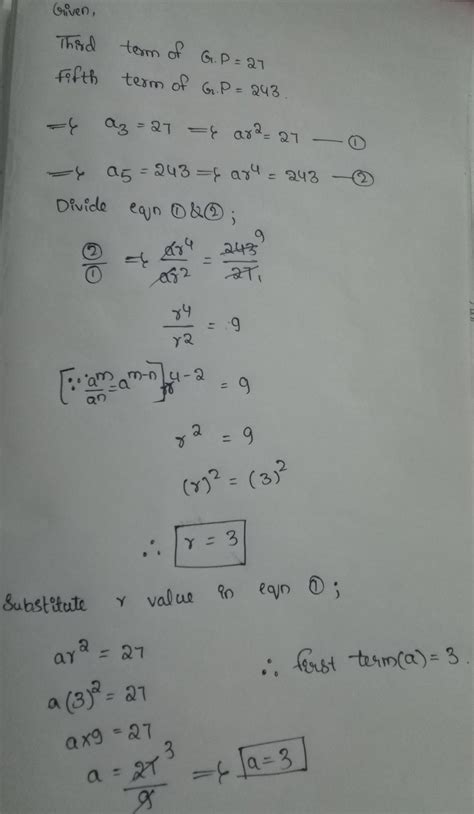 Given,
Third term of G.P = 27
Fifth term of G.P = 243.
=> a₃ = 27 => ar² = 27 — ①
=> a₅ = 243 => ar⁴ = 243 — ②
Divide eqn ① & ②;
②/① => ar⁴/ar² = 243/27 9 1
r⁴/r² = 9
[∵ aᵐ/aⁿ = aᵐ⁻ⁿ] r⁴⁻² = 9
r² = 9
(r)² = (3)²
∴ r = 3
Substitute r value in eqn ①;
ar² = 27
a(3)² = 27
a×9 = 27
a = 27/9 3 => a = 3
∴ first term(a) = 3.